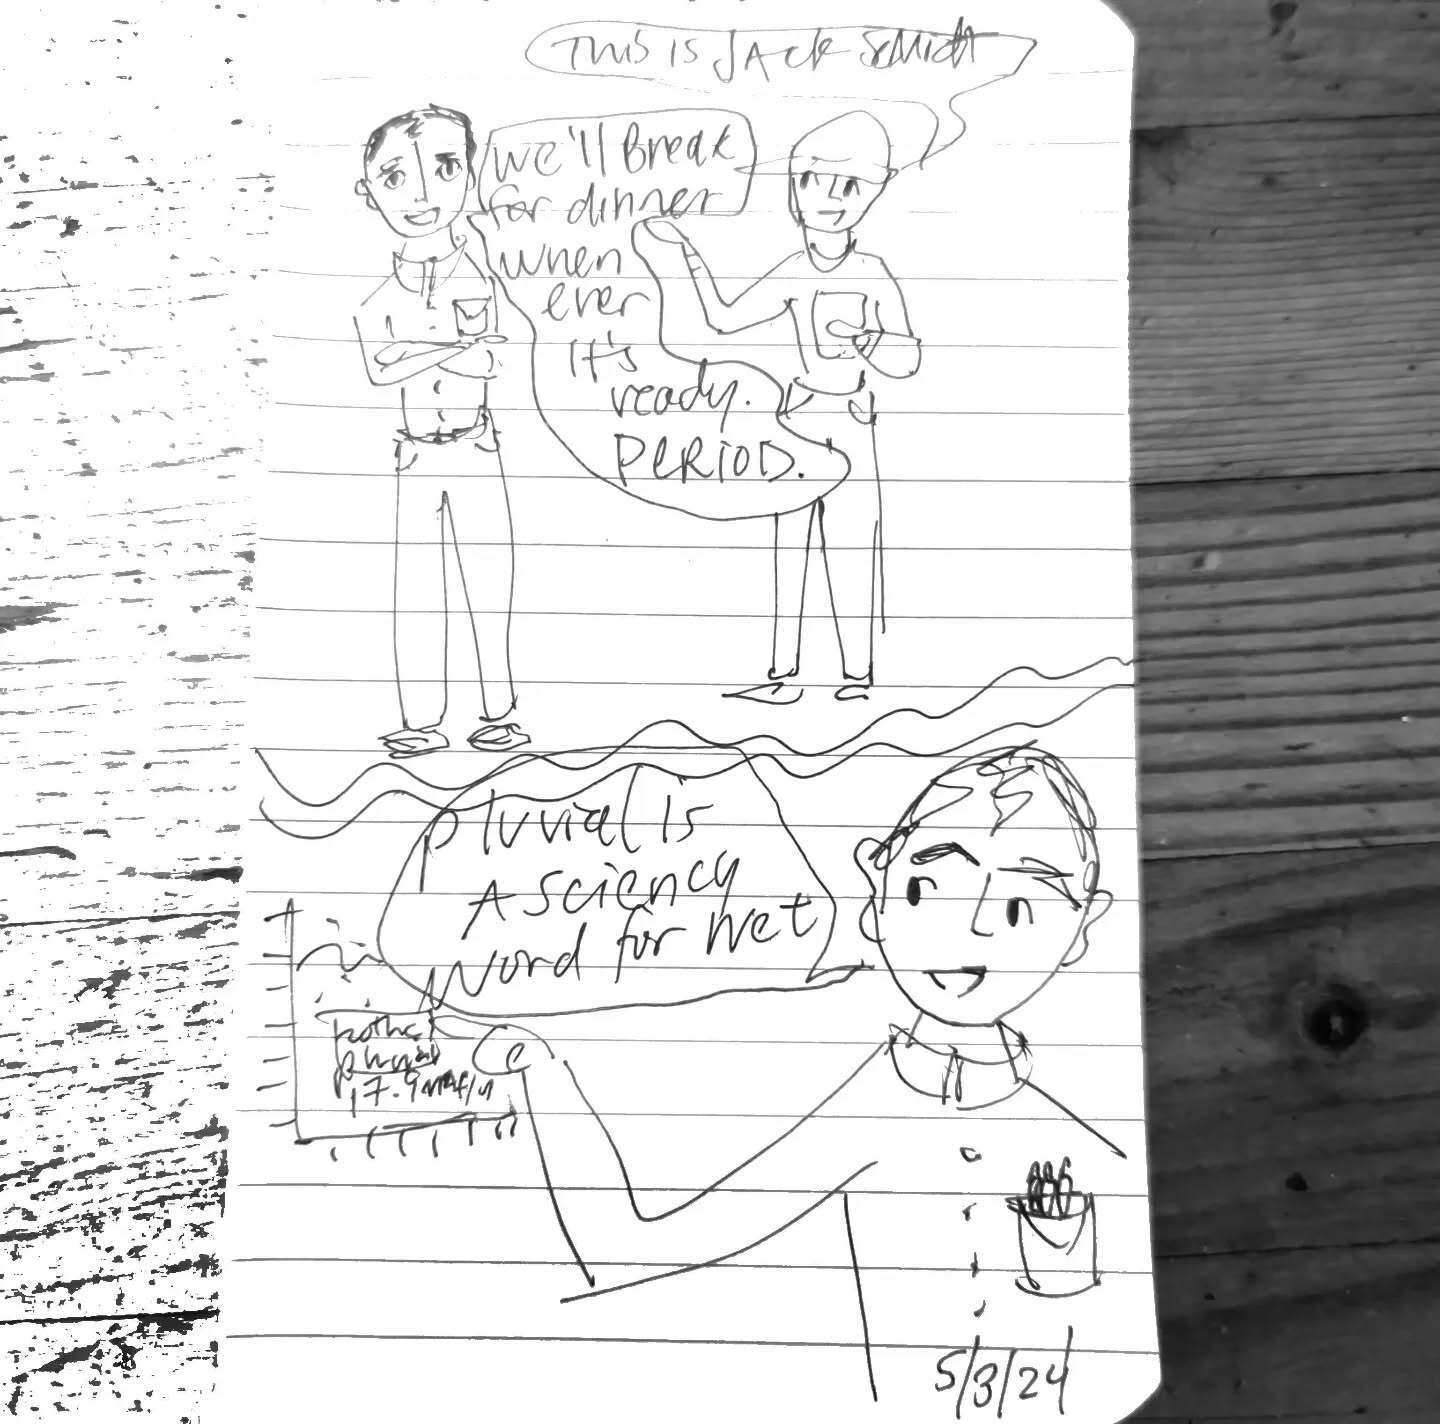 This is JACK Smith
We'll Break
for dinner
when
ever
It's
ready.
PERIOD.
pluvial is
A sciency
word for wet
17.9
5/3/24